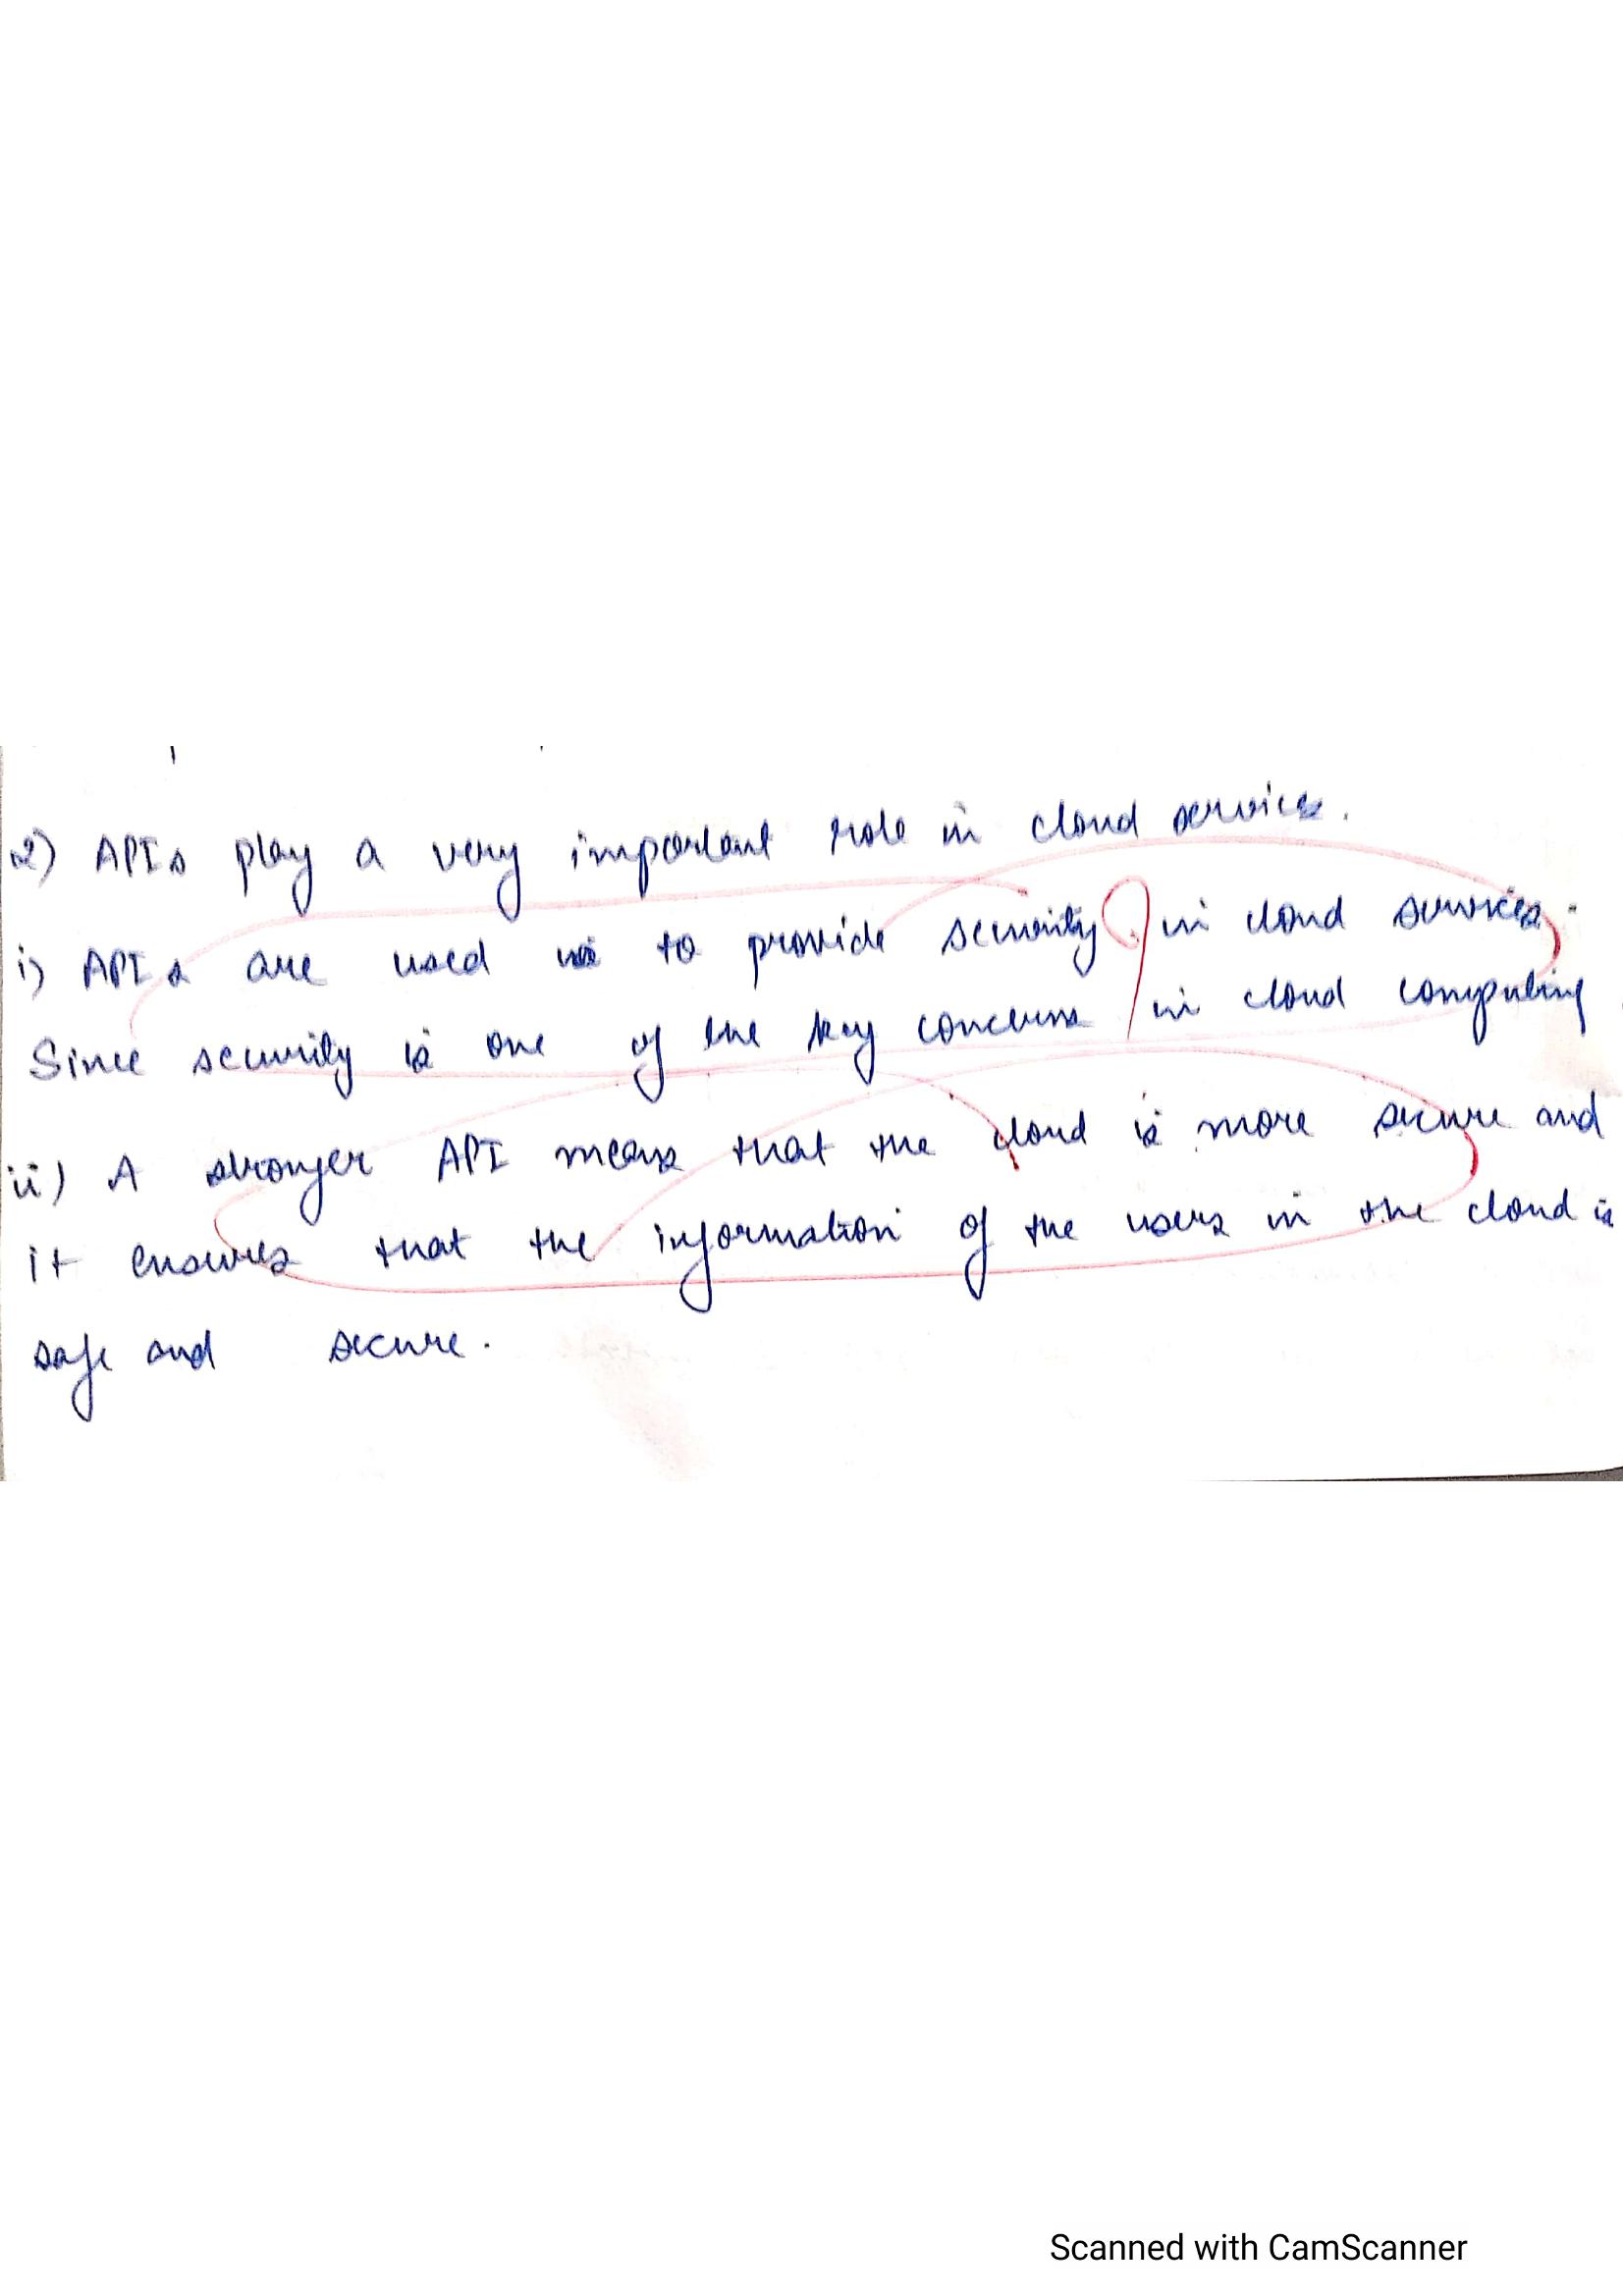 2) APIs play a very important role in cloud services.
i) APIs are used to provide security in cloud services.
Since security is one of the key concerns in cloud computing
ii) A stronger API means that the cloud is more secure and
it ensures that the information of the users in the cloud is
safe and secure.
Scanned with CamScanner